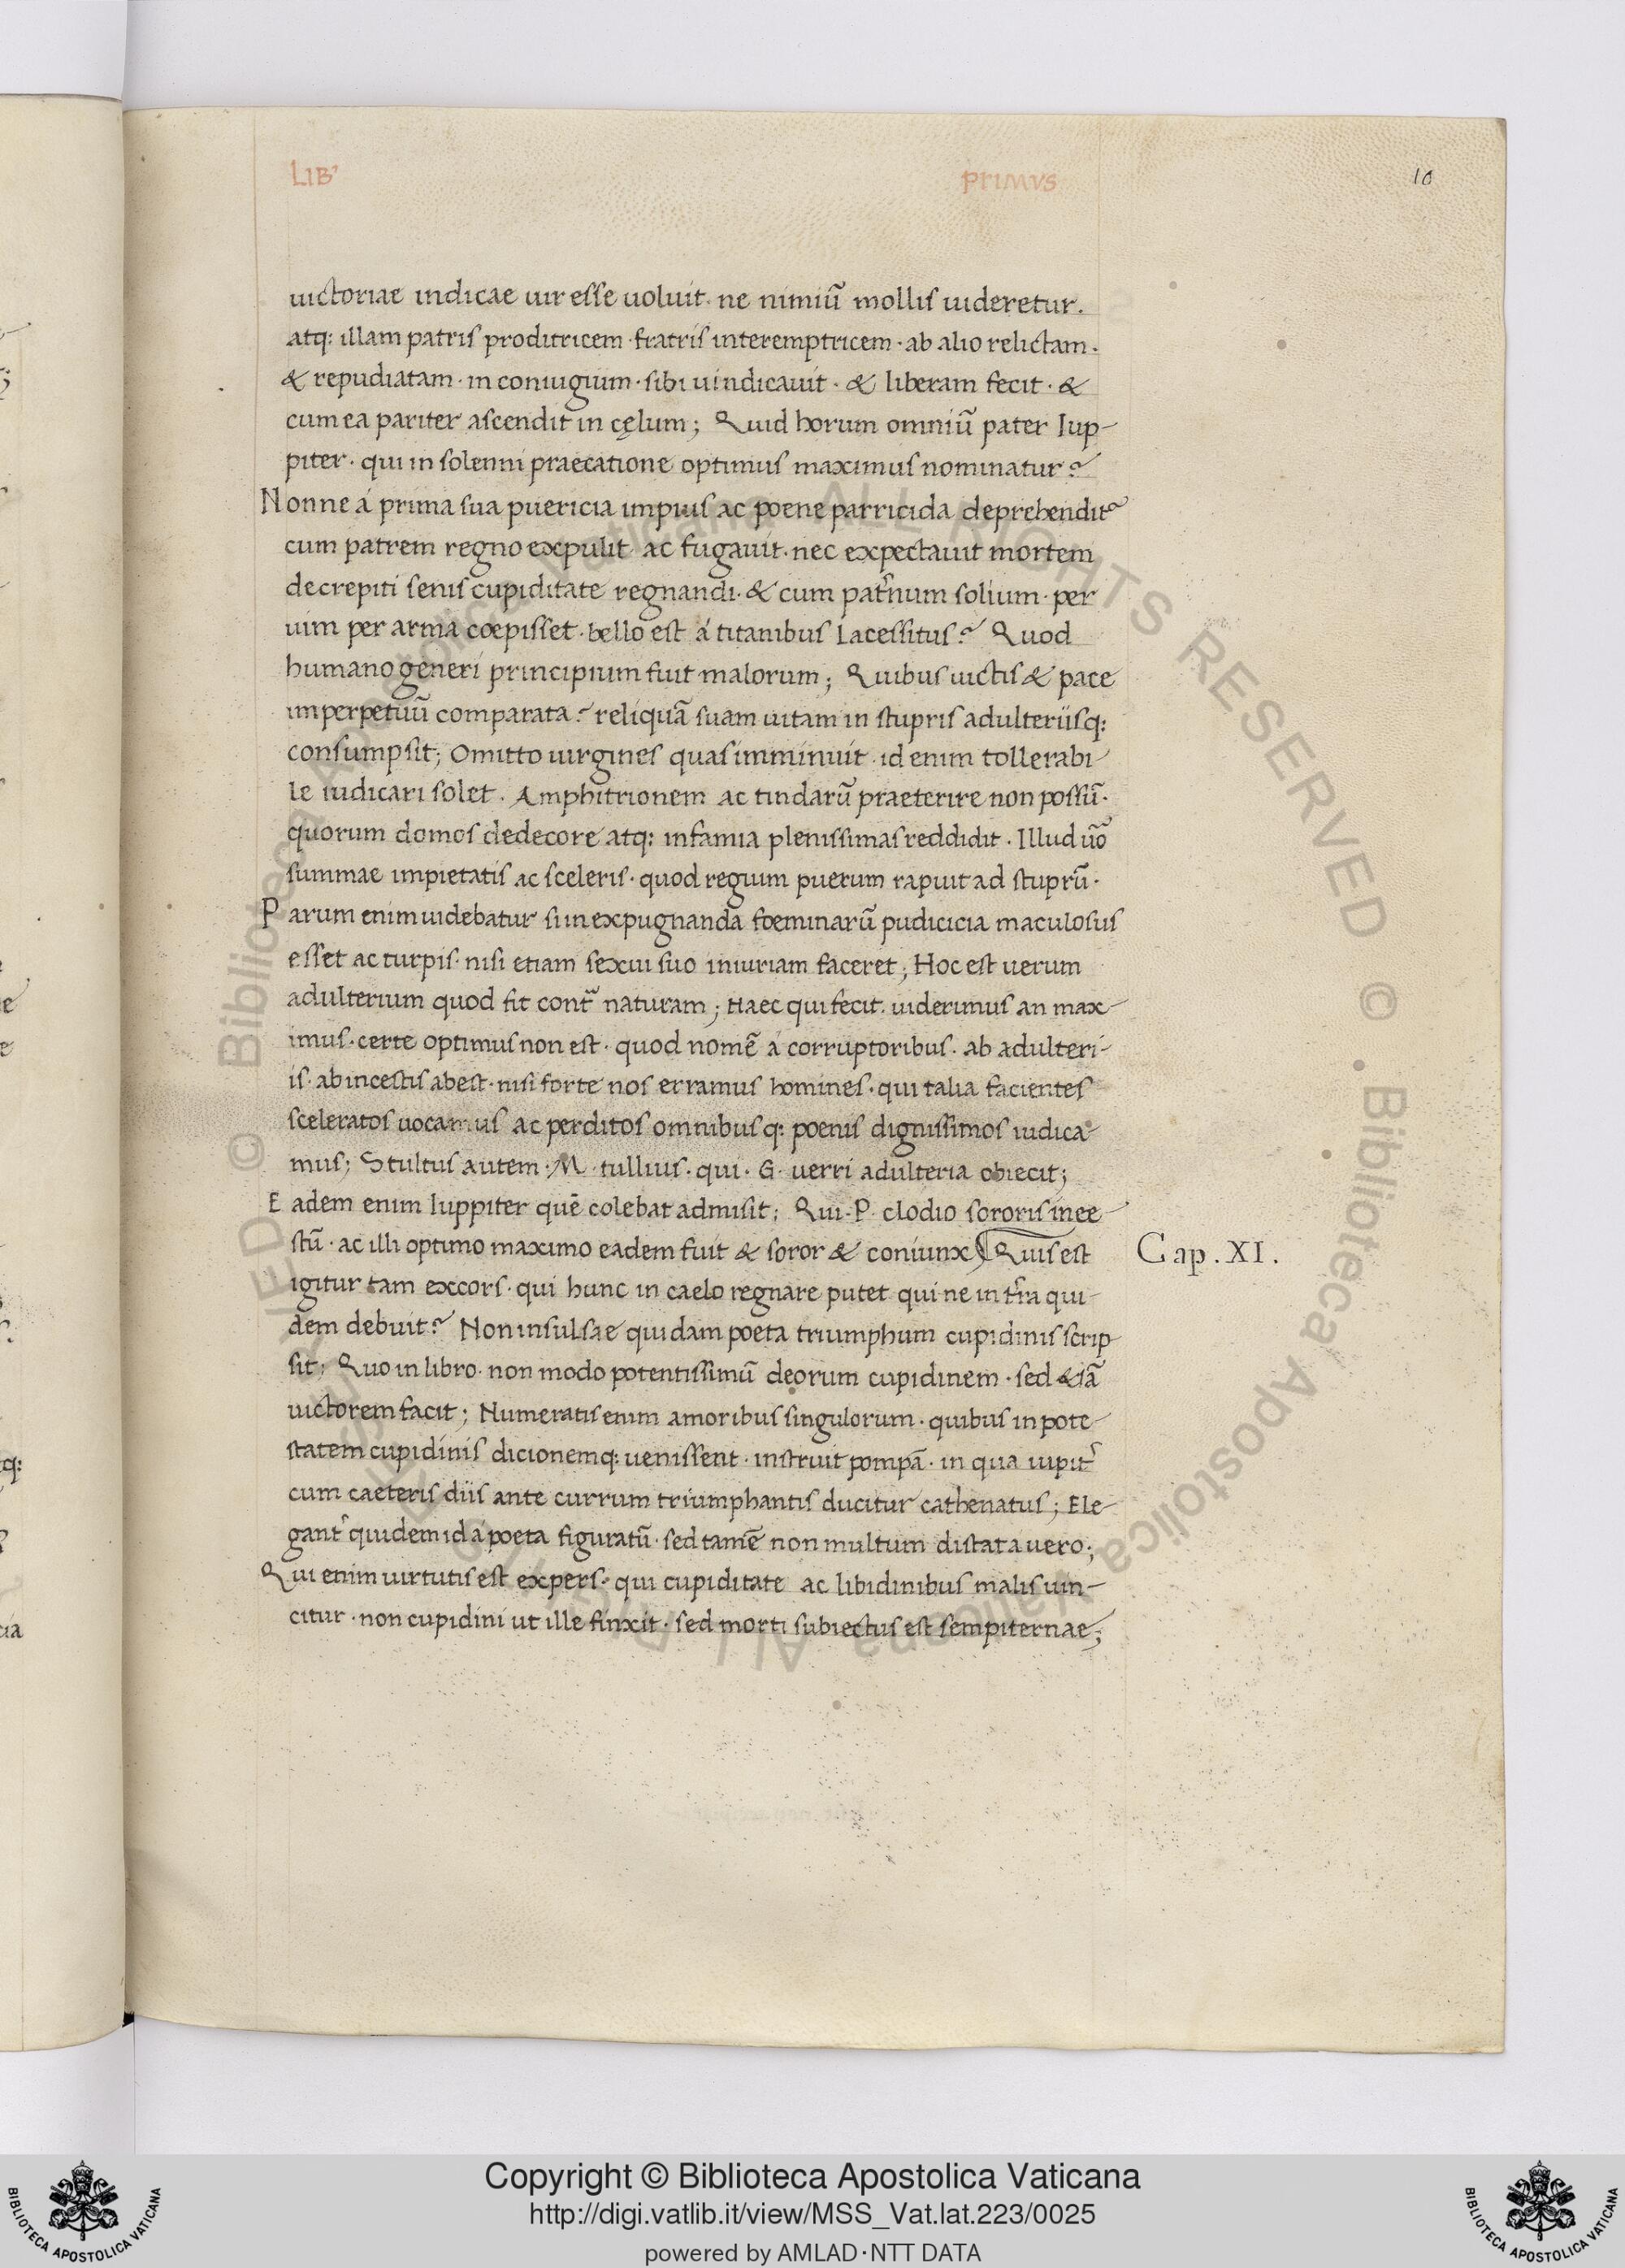 LIB' primvs 10
uictoriae indicae uir esse uoluit· ne nimiũ mollis uideretur.
atq: illam patris proditricem· fratris interemptricem· ab alio relictam.
& repudiatam· in coniugium· sibi uindicauit· & liberam fecit· &
cum ea pariter ascendit in cęlum; Quid horum omniũ pater Iup-
piter· qui in solenni praecatione optimus maximus nominatur?
Nonne á prima sua puericia impius ac poene parricida deprehendit?
cum patrem regno expulit ac fugauit· nec expectauit mortem
decrepiti senis cupiditate regnandi· & cum pat̃num solium· per
uim per arma coepisset· bello est á titanibus Lacessitus? Quod
humano generi principium fuit malorum; Quibus uictis & pace
inperpetuũ comparata? reliquã suam uitam in stupris adulteriisq:
consumpsit; Omitto uirgines quas imminuit· id enim tollerabi-
le iudicari solet. Amphitrionem ac tindarũ praeterire non possũ·
quorum domos dedecore atq: infamia plenissimas reddidit. Illud ũo
summae impietatis ac sceleris· quod regium puerum rapuit ad stuprũ·
Parum enim uidebatur si in expugnanda foeminarũ pudicicia maculosus
esset ac turpis· nisi etiam sexui suo iniuriam faceret; Hoc est uerum
adulterium quod fit cont̃ naturam; Haec qui fecit· uiderimus an max-
imus· certe optimus non est· quod nomẽ á corruptoribus· ab adulteri-
is· ab incestis abest· nisi forte nos erramus homines· qui talia facientes
sceleratos uocamus ac perditos omnibusq: poenis dignissimos iudica-
mus; Stultus autem· M· tullius· qui· G· uerri adulteria obiecit;
Eadem enim Iuppiter quẽ colebat admisit; Qui· P· clodio sororis ince-
stũ· ac illi optimo maximo eadem fuit & soror & coniunx; Quis est
Cap. XI.
igitur tam excors· qui hunc in caelo regnare putet qui ne in t̃ra qui-
dem debuit? Non insulsae quidam poeta triumphum cupidinis scrip-
sit; Quo in libro· non modo potentissimũ deorum cupidinem· sed &iã
uictorem facit; Numeratis enim amoribus singulorum· quibus in pote-
statem cupidinis dicionemq: uenissent· instruit pompã· in qua iupit̃
cum caeteris diis ante currum triumphantis ducitur cathenatus; Ele-
gant̃ quidem id á poeta figuratũ· sed tamẽ non multum distat a uero;
Qui enim uirtutis est expers· qui cupiditate ac libidinibus malis uin-
citur· non cupidini ut ille finxit· sed morti subiectus est sempiternae;
Copyright © Biblioteca Apostolica Vaticana
http://digi.vatlib.it/view/MSS_Vat.lat.223/0025
powered by AMLAD·NTT DATA
BIBLIOTECA APOSTOLICA VATICANA
BIBLIOTECA APOSTOLICA VATICANA